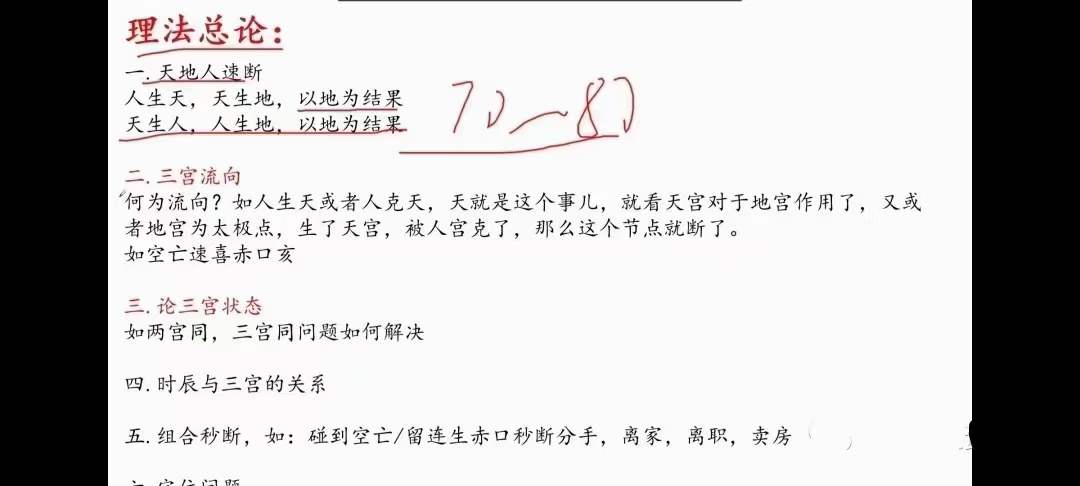 理法总论：
一.天地人速断
人生天，天生地，以地为结果
天生人，人生地，以地为结果
70-80
二.三宫流向
何为流向？如人生天或者人克天，天就是这个事儿，就看天宫对于地宫作用了，又或
者地宫为太极点，生了天宫，被人宫克了，那么这个节点就断了。
如空亡速喜赤口亥
三.论三宫状态
如两宫同，三宫同问题如何解决
四.时辰与三宫的关系
五.组合秒断，如：碰到空亡/留连生赤口秒断分手，离家，离职，卖房